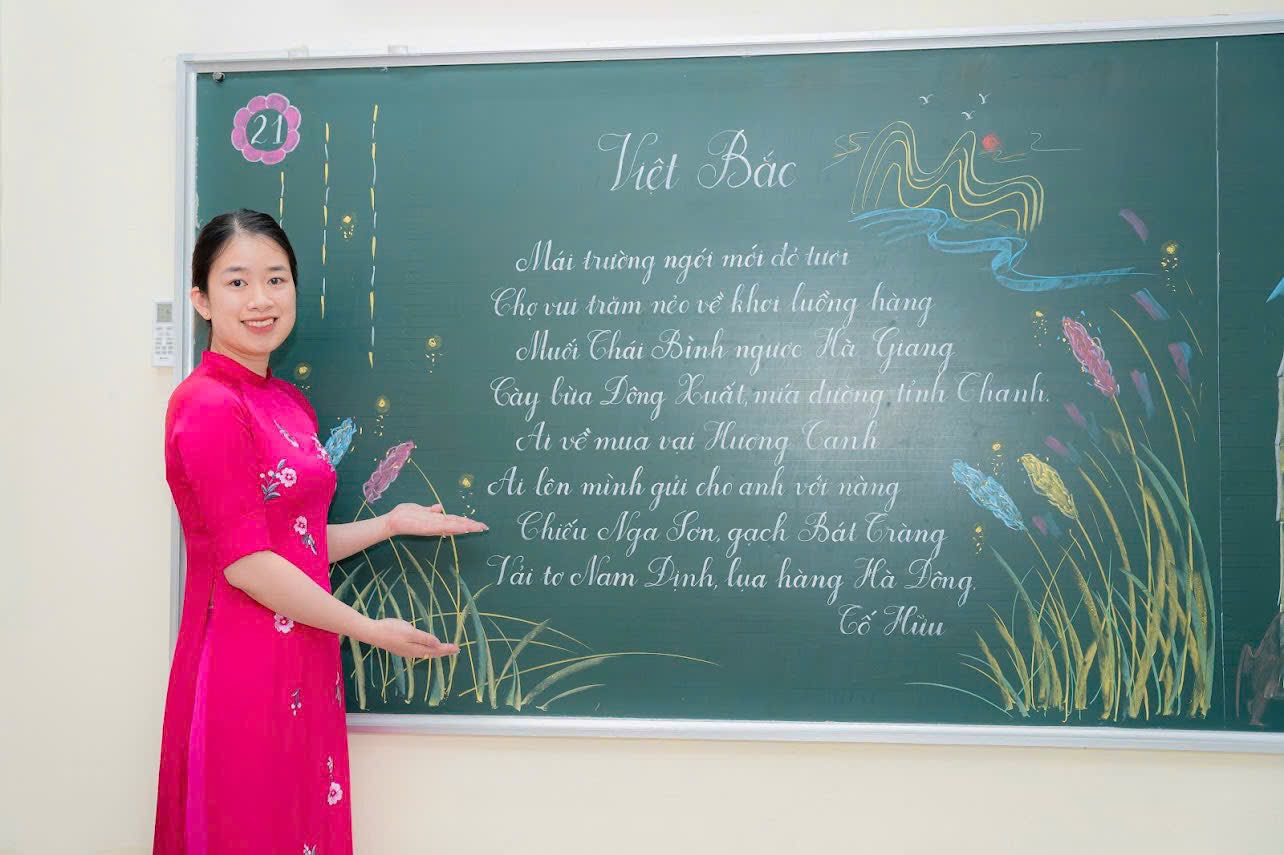 21
Việt Bắc
Mái trường ngói mới đỏ tươi
Chợ vui trăm nẻo về khơi luồng hàng
Muối Thái Bình ngược Hà Giang
Cày bừa Đông Xuất, mía đường tỉnh Thanh.
Ai về mua vại Hương Canh
Ai lên mình gửi cho anh với nàng
Chiếu Nga Sơn, gạch Bát Tràng
Vải tơ Nam Định, lụa hàng Hà Đông.
Tố Hữu